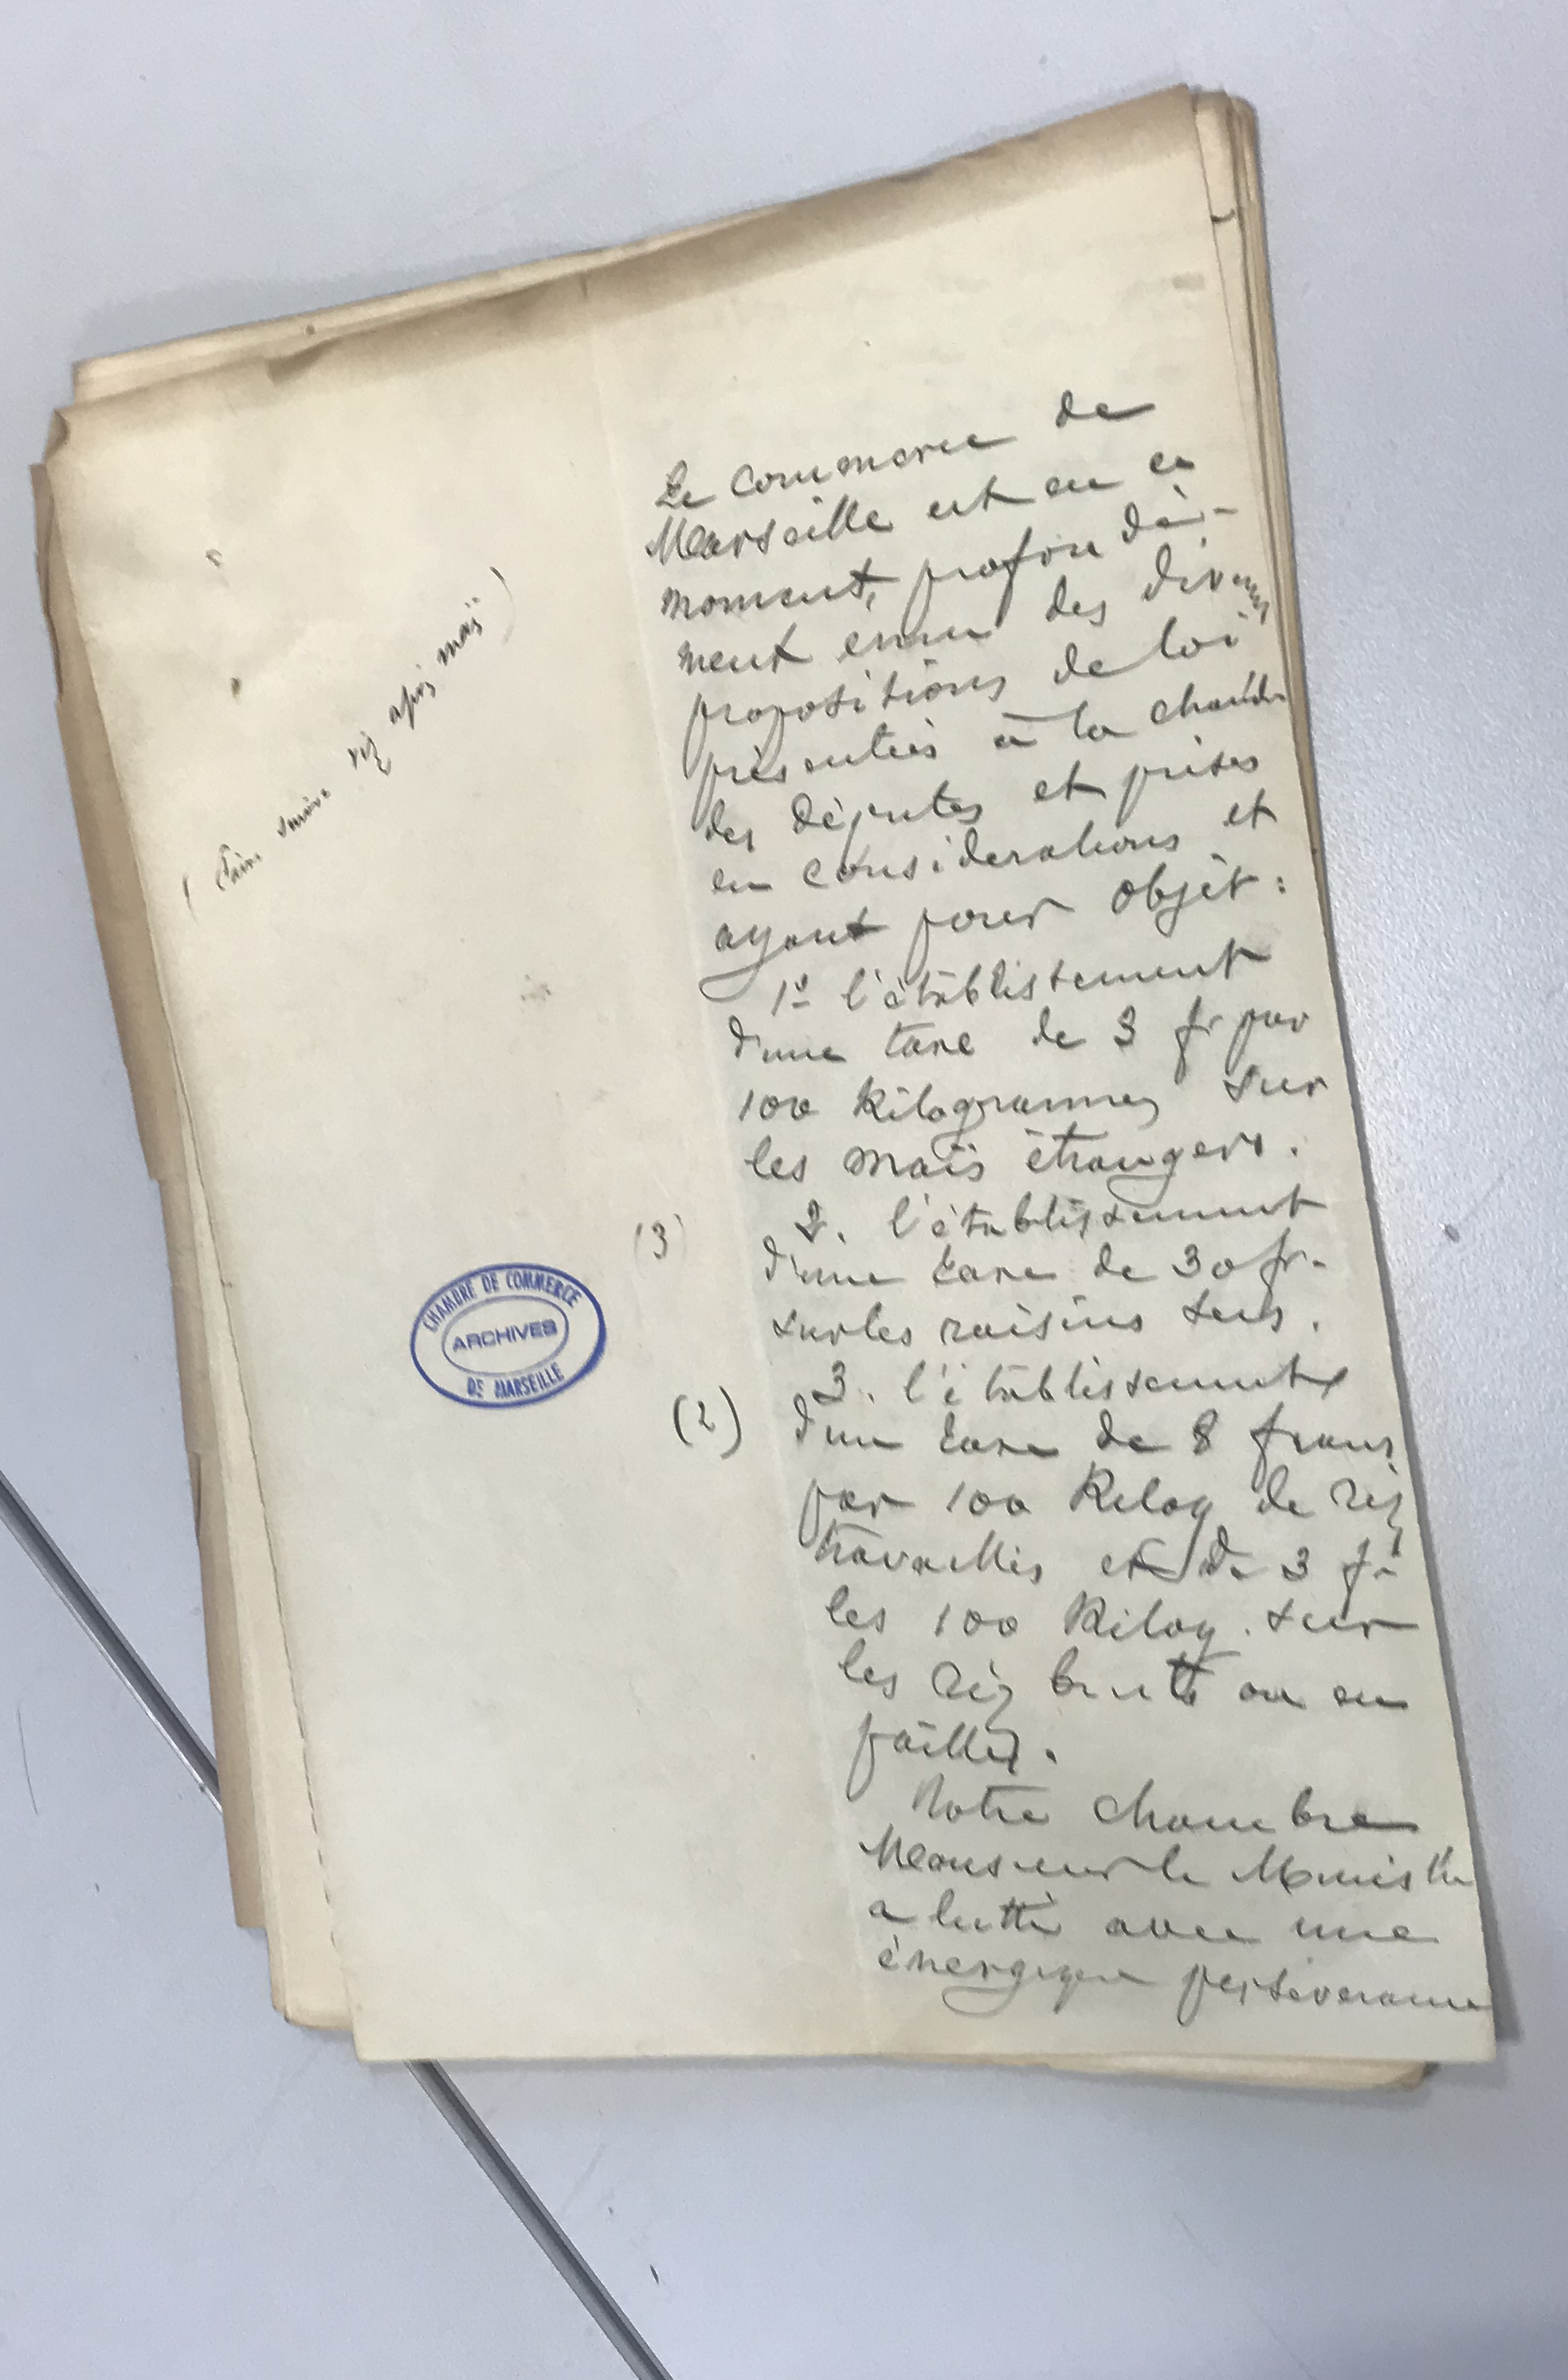 Le commerce de
Marseille est en ce
moment, profondé-
ment ému des diverses
propositions de loi
présentées à la chambre
des députés et prises
en considérations et
ayant pour objèt :
1º l'établissement
d'une taxe de 3 fr par
100 Kilogrammes sur
les maïs étrangers.
2. l'établissement
d'une taxe de 30 fr.
sur les raisins secs.
3. l'établissement
d'une taxe de 8 francs
par 100 Kilog de riz
travaillés et de 3 fr
les 100 Kilog. sur
les riz bruts ou en
pailles.
Notre chambre
Monsieur le Ministre
a lutté avec une
énergique perséverance
(faire suivre riz après maïs)
(3)
(2)
CHAMBRE DE COMMERCE
ARCHIVES
DE MARSEILLE